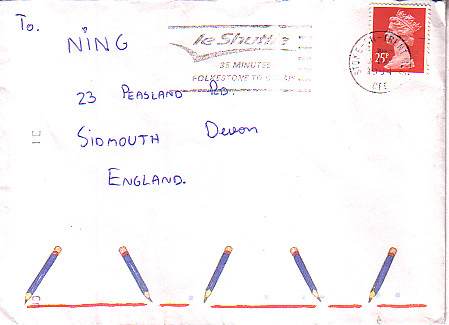 To.
NING
le Shuttle
35 MINUTES
FOLKESTONE TO
25P
23 PEASLAND RD.
SIDMOUTH Devon
ENGLAND.